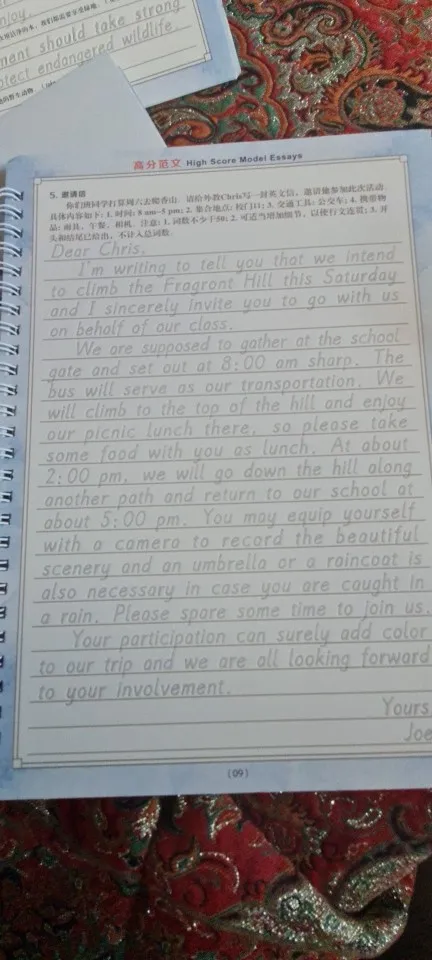 enjoy.
ment should take strong
otect endangered wildlife.
高分范文 High Score Model Essays
5. 邀请信
你们班同学打算周六去爬香山。请给外教Chris写一封英文信，邀请他参加此次活动。
具体内容如下：1. 时间：8 am–5 pm；2. 集合地点：校门口；3. 交通工具：公交车；4. 携带物
品：雨具、午餐、相机。注意：1. 词数不少于50；2. 可适当增加细节，以使行文连贯；3. 开
头和结尾已给出，不计入总词数。
Dear Chris,
I'm writing to tell you that we intend
to climb the Fragront Hill this Saturday
and I sincerely invite you to go with us
on behalf of our class.
We are supposed to gather at the school
gate and set out at 8:00 am sharp. The
bus will serve as our transportation. We
will climb to the top of the hill and enjoy
our picnic lunch there, so please take
some food with you as lunch. At about
2:00 pm, we will go down the hill along
another path and return to our school at
about 5:00 pm. You may equip yourself
with a camera to record the beautiful
scenery and an umbrella or a raincoat is
also necessary in case you are caught in
a rain. Please spare some time to join us.
Your participation can surely add color
to our trip and we are all looking forward
to your involvement.
Yours,
Joe
(09)